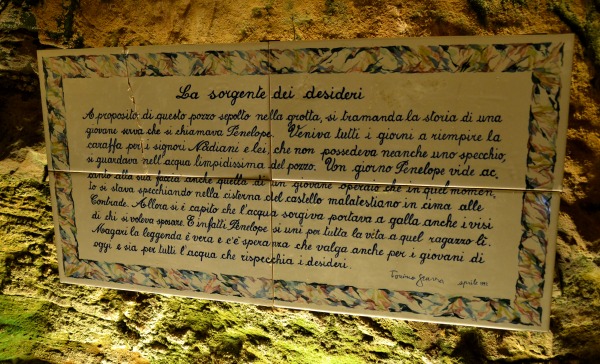 La sorgente dei desideri
A proposito di questo pozzo sepolto nella grotta, si tramanda la storia di una
giovane serva che si chiamava Penelope. Veniva tutti i giorni a riempire la
caraffa per i signori Nadiani e lei, che non possedeva neanche uno specchio,
si guardava nell'acqua limpidissima del pozzo. Un giorno Penelope vide ac,
canto alla sua faccia anche quella di un giovane operaio che in quel momen,
to si stava specchiando nella cisterna del castello malatestiano in cima alle
Contrade. Allora si è capito che l'acqua sorgiva portava a galla anche i visi
di chi si voleva sposare. E infatti Penelope si unì per tutta la vita a quel ragazzo lì.
Magari la leggenda è vera e c'è speranza che valga anche per i giovani di
oggi e sia per tutti l'acqua che rispecchia i desideri.
Tonino Guerra